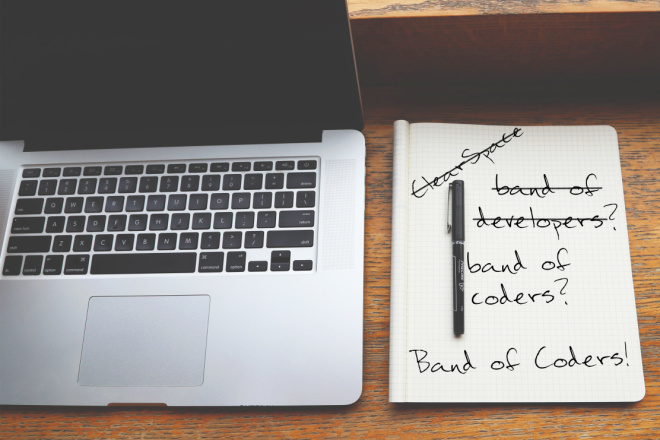 ClearSpace
band of
developers?
band of
coders?
Band of Coders!